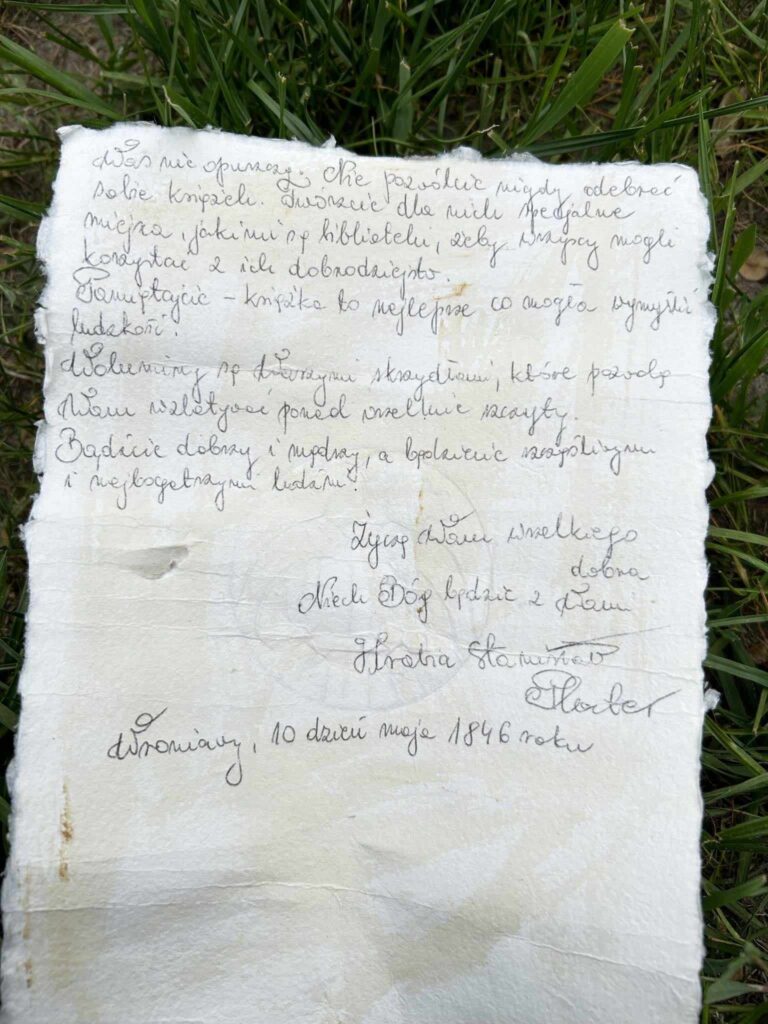 Was nie opuszczą. Nie pozwólcie nigdy odebrać
sobie książek. Twórzcie dla nich specjalne
miejsca, jakimi są biblioteki, żeby wszyscy mogli
korzystać z ich dobrodziejstw.
Pamiętajcie – książka to najlepsze co mogła wymyślić
ludzkość.
Woluminy są Waszymi skrzydłami, które pozwolą
Wam wzlatywać ponad wszelkie szczyty.
Bądźcie dobrzy i mądrzy, a będziecie szczęśliwymi
i najbogatszymi ludźmi!
Życzę Wam wszelkiego
dobra
Niech Bóg będzie z Wami
Hrabia Stanisław
Plater
Wroniawy, 10 dzień maja 1846 roku